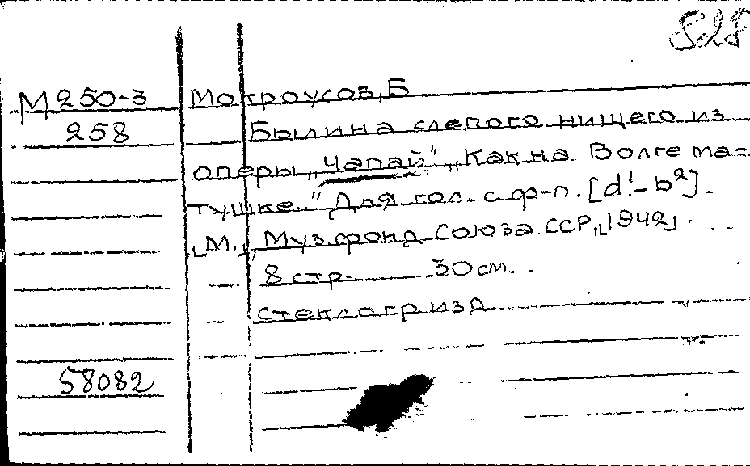 528
М 250-3 Мокроусов, Б
258 Былина слепого нищего из
оперы „Чапай" „Как на Волге ма-
тушке." Для гол. с ф-п. [d¹-b²].
[М.], Музфонд Союза ССР, [1942].
8 стр. 30 см.
стеклогр изд
58082